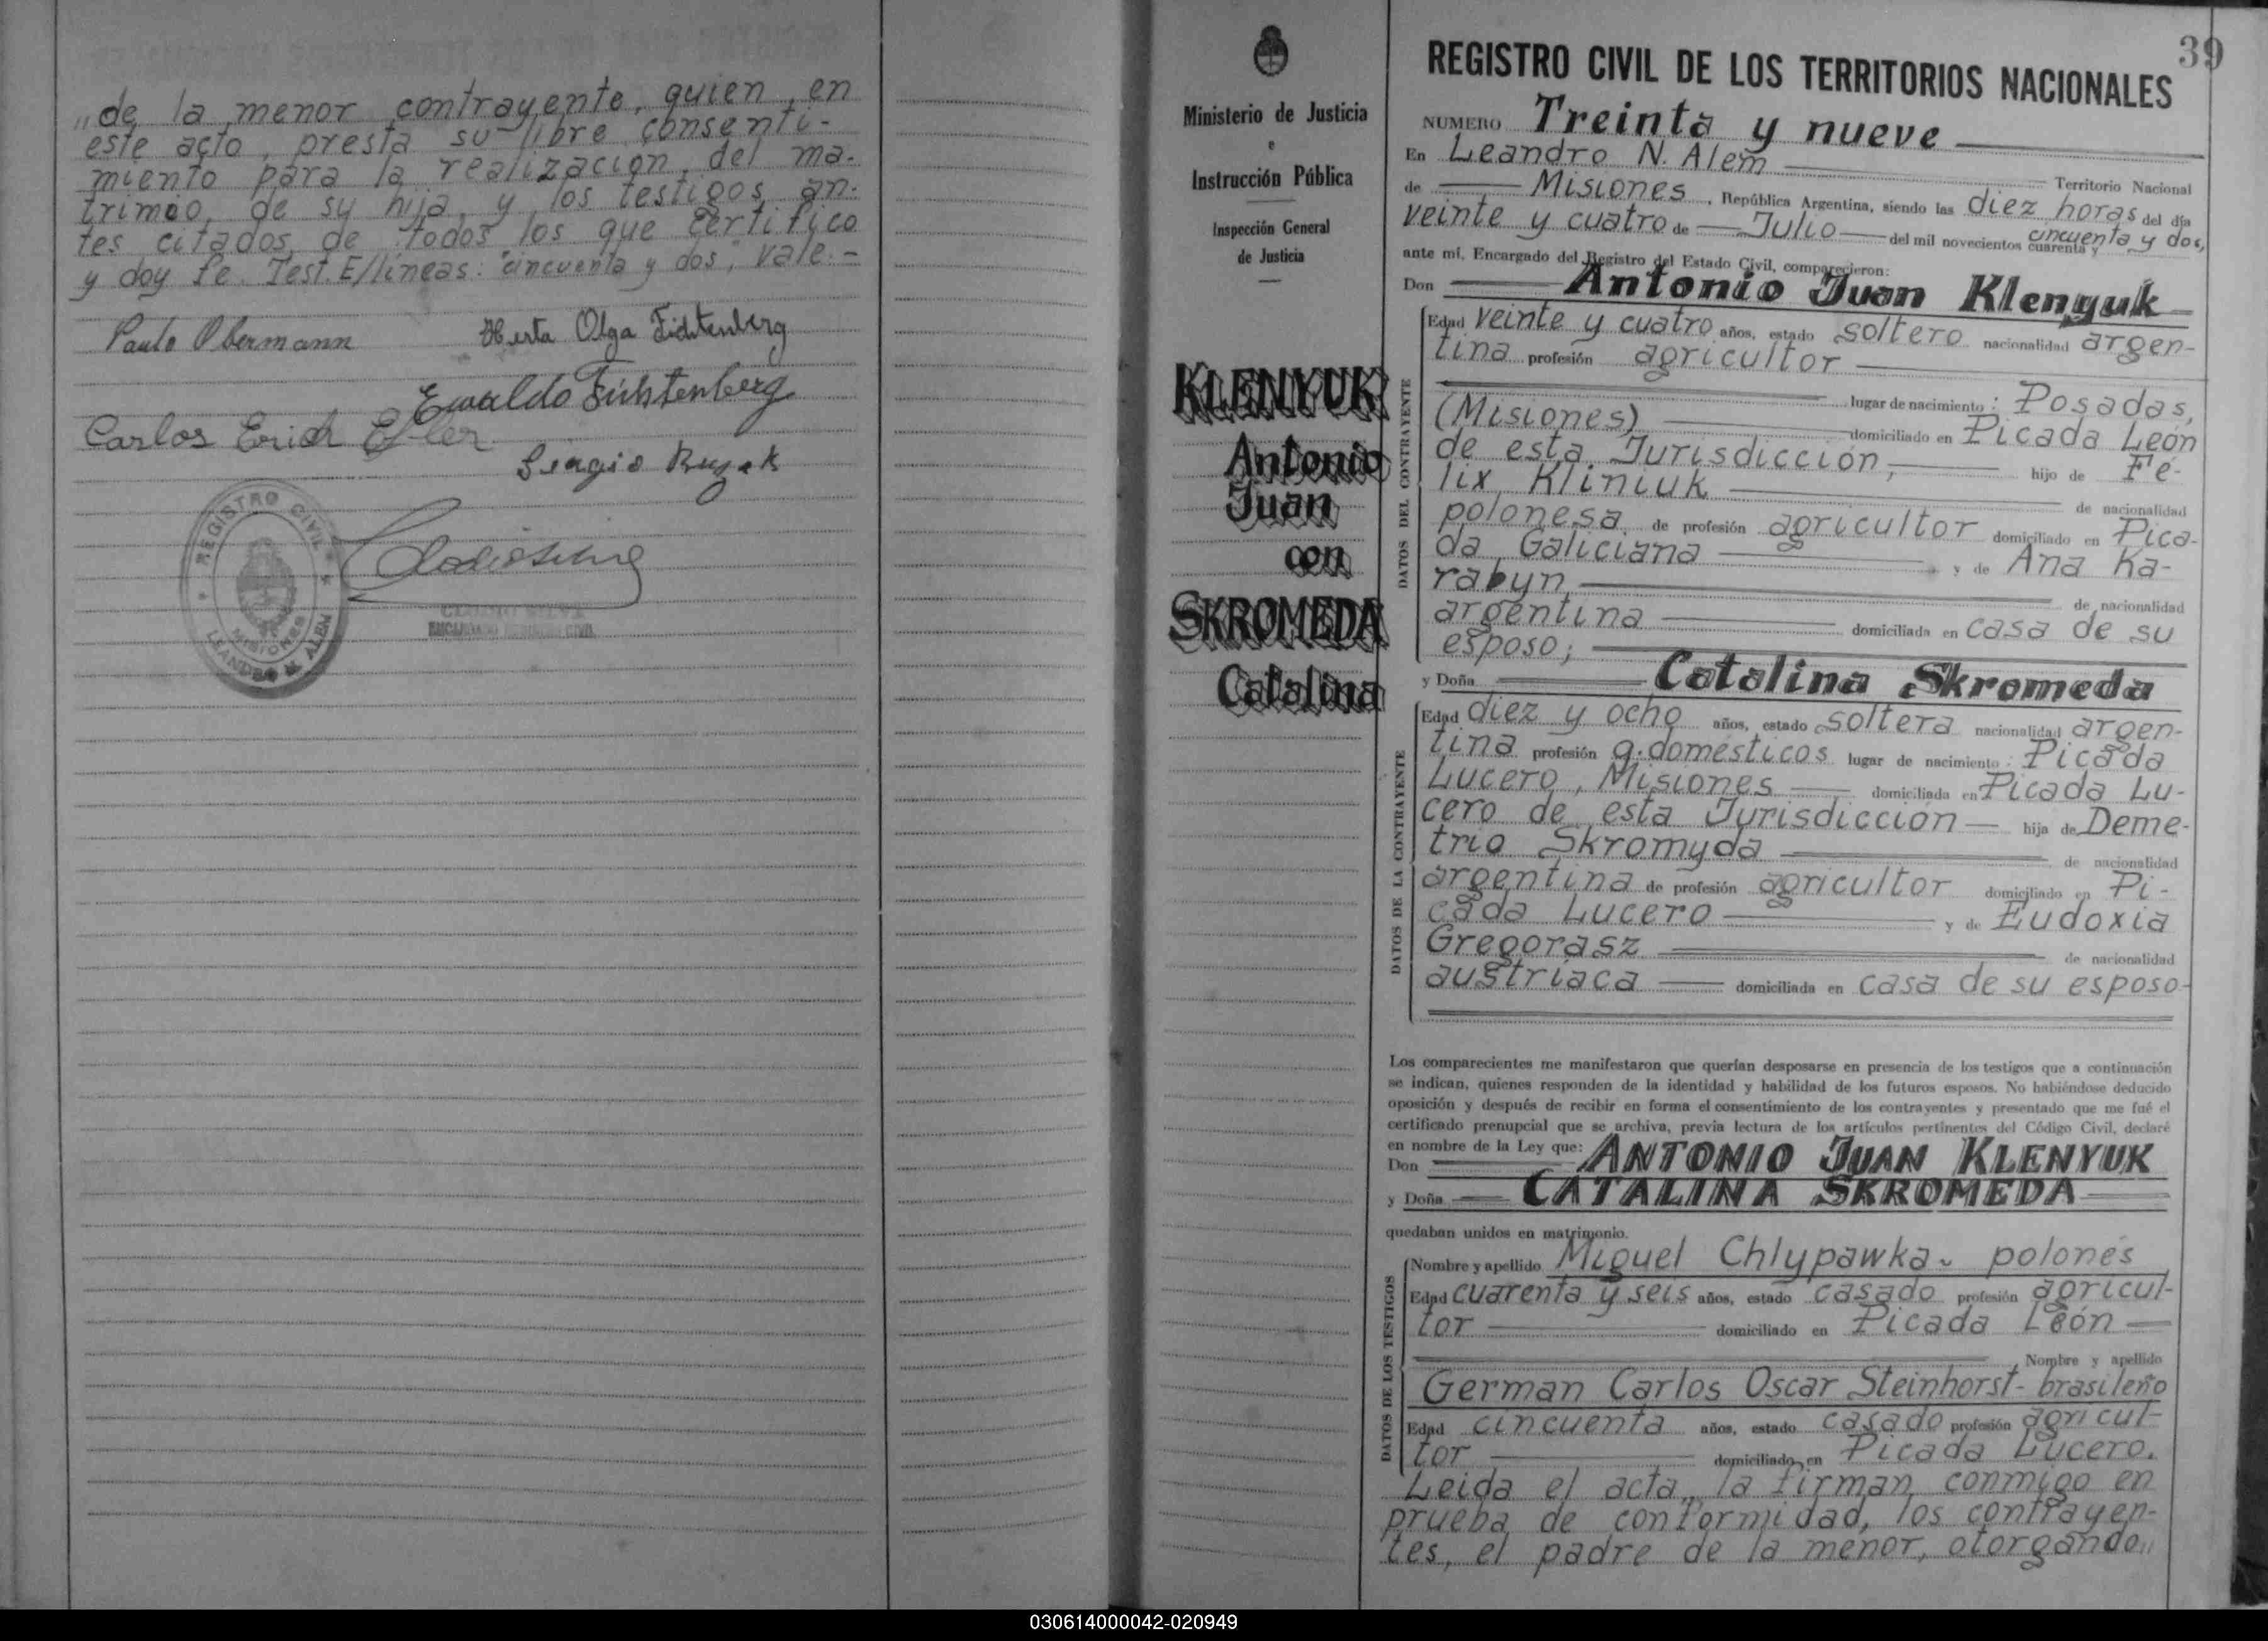 „de la menor contrayente, quien en
este acto, presta su libre consenti-
miento para la realización del ma-
trimoo, de su hija, y los testigos an-
tes citados, de todos los que certifico
y doy fe. Test. E/líneas: "cincuenta y dos", vale.-
Paulo Obermann Herta Olga Fichtenberg
Ewaldo Fichtenberg
Carlos Erich
Sergio
REGISTRO CIVIL
MISIONES
LEANDRO N. ALEM
ENCARGADO REGISTRO CIVIL
39
Ministerio de Justicia
e
Instrucción Pública
Inspección General
de Justicia
KLENYUK
Antonio
Juan
con
SKROMEDA
Catalina
REGISTRO CIVIL DE LOS TERRITORIOS NACIONALES
NUMERO Treinta y nueve
En Leandro N. Alem Territorio Nacional
de Misiones, República Argentina, siendo las diez horas del día
veinte y cuatro de Julio del mil novecientos cuarenta y cincuenta y dos,
ante mí, Encargado del Registro del Estado Civil, comparecieron:
Don Antonio Juan Klenyuk
DATOS DEL CONTRAYENTE
Edad veinte y cuatro años, estado soltero nacionalidad argen-
tina profesión agricultor
lugar de nacimiento: Posadas,
(Misiones) domiciliado en Picada León
de esta Jurisdicción, hijo de Fé-
lix Kliniuk de nacionalidad
polonesa de profesión agricultor domiciliado en Pica-
da Galiciana y de Ana Ka-
rabyn de nacionalidad
argentina domiciliada en casa de su
esposo;
y Doña Catalina Skromeda
DATOS DE LA CONTRAYENTE
Edad diez y ocho años, estado soltera nacionalidad argen-
tina profesión q. domésticos lugar de nacimiento: Picada
Lucero, Misiones domiciliada en Picada Lu-
cero de esta Jurisdicción hija de Deme-
trio Skromyda de nacionalidad
argentina de profesión agricultor domiciliado en Pi-
cada Lucero y de Eudoxia
Gregorasz de nacionalidad
austriaca domiciliada en casa de su esposo-
Los comparecientes me manifestaron que querían desposarse en presencia de los testigos que a continuación
se indican, quienes responden de la identidad y habilidad de los futuros esposos. No habiéndose deducido
oposición y después de recibir en forma el consentimiento de los contrayentes y presentado que me fué el
certificado prenupcial que se archiva, previa lectura de los artículos pertinentes del Código Civil, declaré
en nombre de la Ley que:
Don ANTONIO JUAN KLENYUK
y Doña CATALINA SKROMEDA
quedaban unidos en matrimonio.
DATOS DE LOS TESTIGOS
Nombre y apellido Miguel Chlypawka - polonés
Edad cuarenta y seis años, estado casado profesión agricul-
tor domiciliado en Picada León
Nombre y apellido
German Carlos Oscar Steinhorst - brasileño
Edad cincuenta años, estado casado profesión agricul-
tor domiciliado en Picada Lucero.
Leida el acta, la firman conmigo en
prueba de conformidad, los contrayen-
tes, el padre de la menor, otorgando„
030614000042-020949